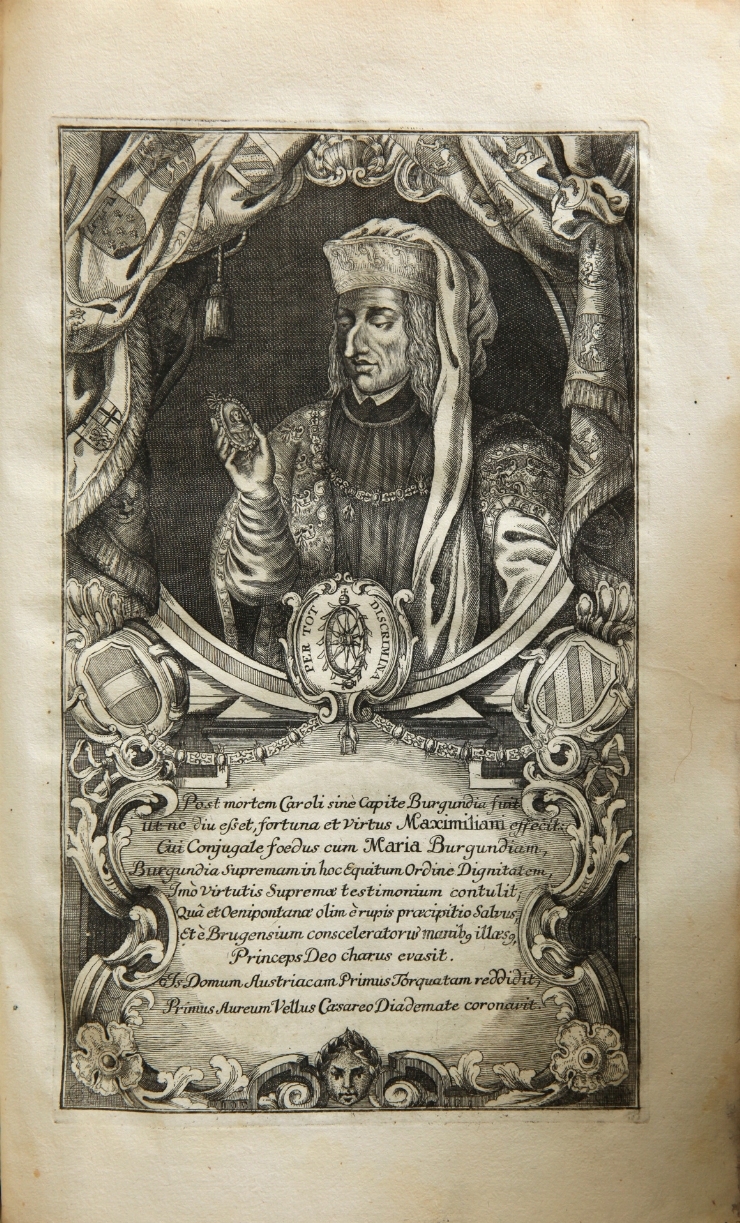 PER TOT DISCRIMINA
Post mortem Caroli sine Capite Burgundia fuit
ut ne diu esset, fortuna et Virtus Maximiliani effecit:
Cui Conjugale foedus cum Maria Burgundiam,
Burgundia Supremam in hoc Equitum Ordine Dignitatem,
Imò Virtutis Supremæ testimonium contulit;
Quâ et Oenipontanæ olim è rupis præcipitio Salvus,
Et è Brugensium consceleratorũ manibꝫ illæsꝫ,
Princeps Deo charus evasit.
Is Domum Austriacam Primus Torquatam reddidit,
Primus Aureum Vellus Cæsareo Diademate coronavit.